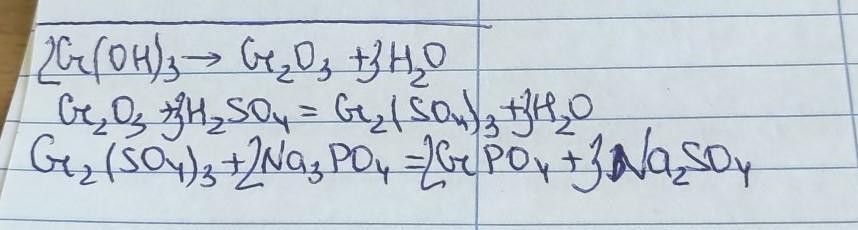 2Cr(OH)3→ Cr2O3 +3H2O
Cr2O3 +3H2SO4 = Cr2(SO4)3 +3H2O
Cr2(SO4)3 +2Na3PO4 =2CrPO4 +3Na2SO4